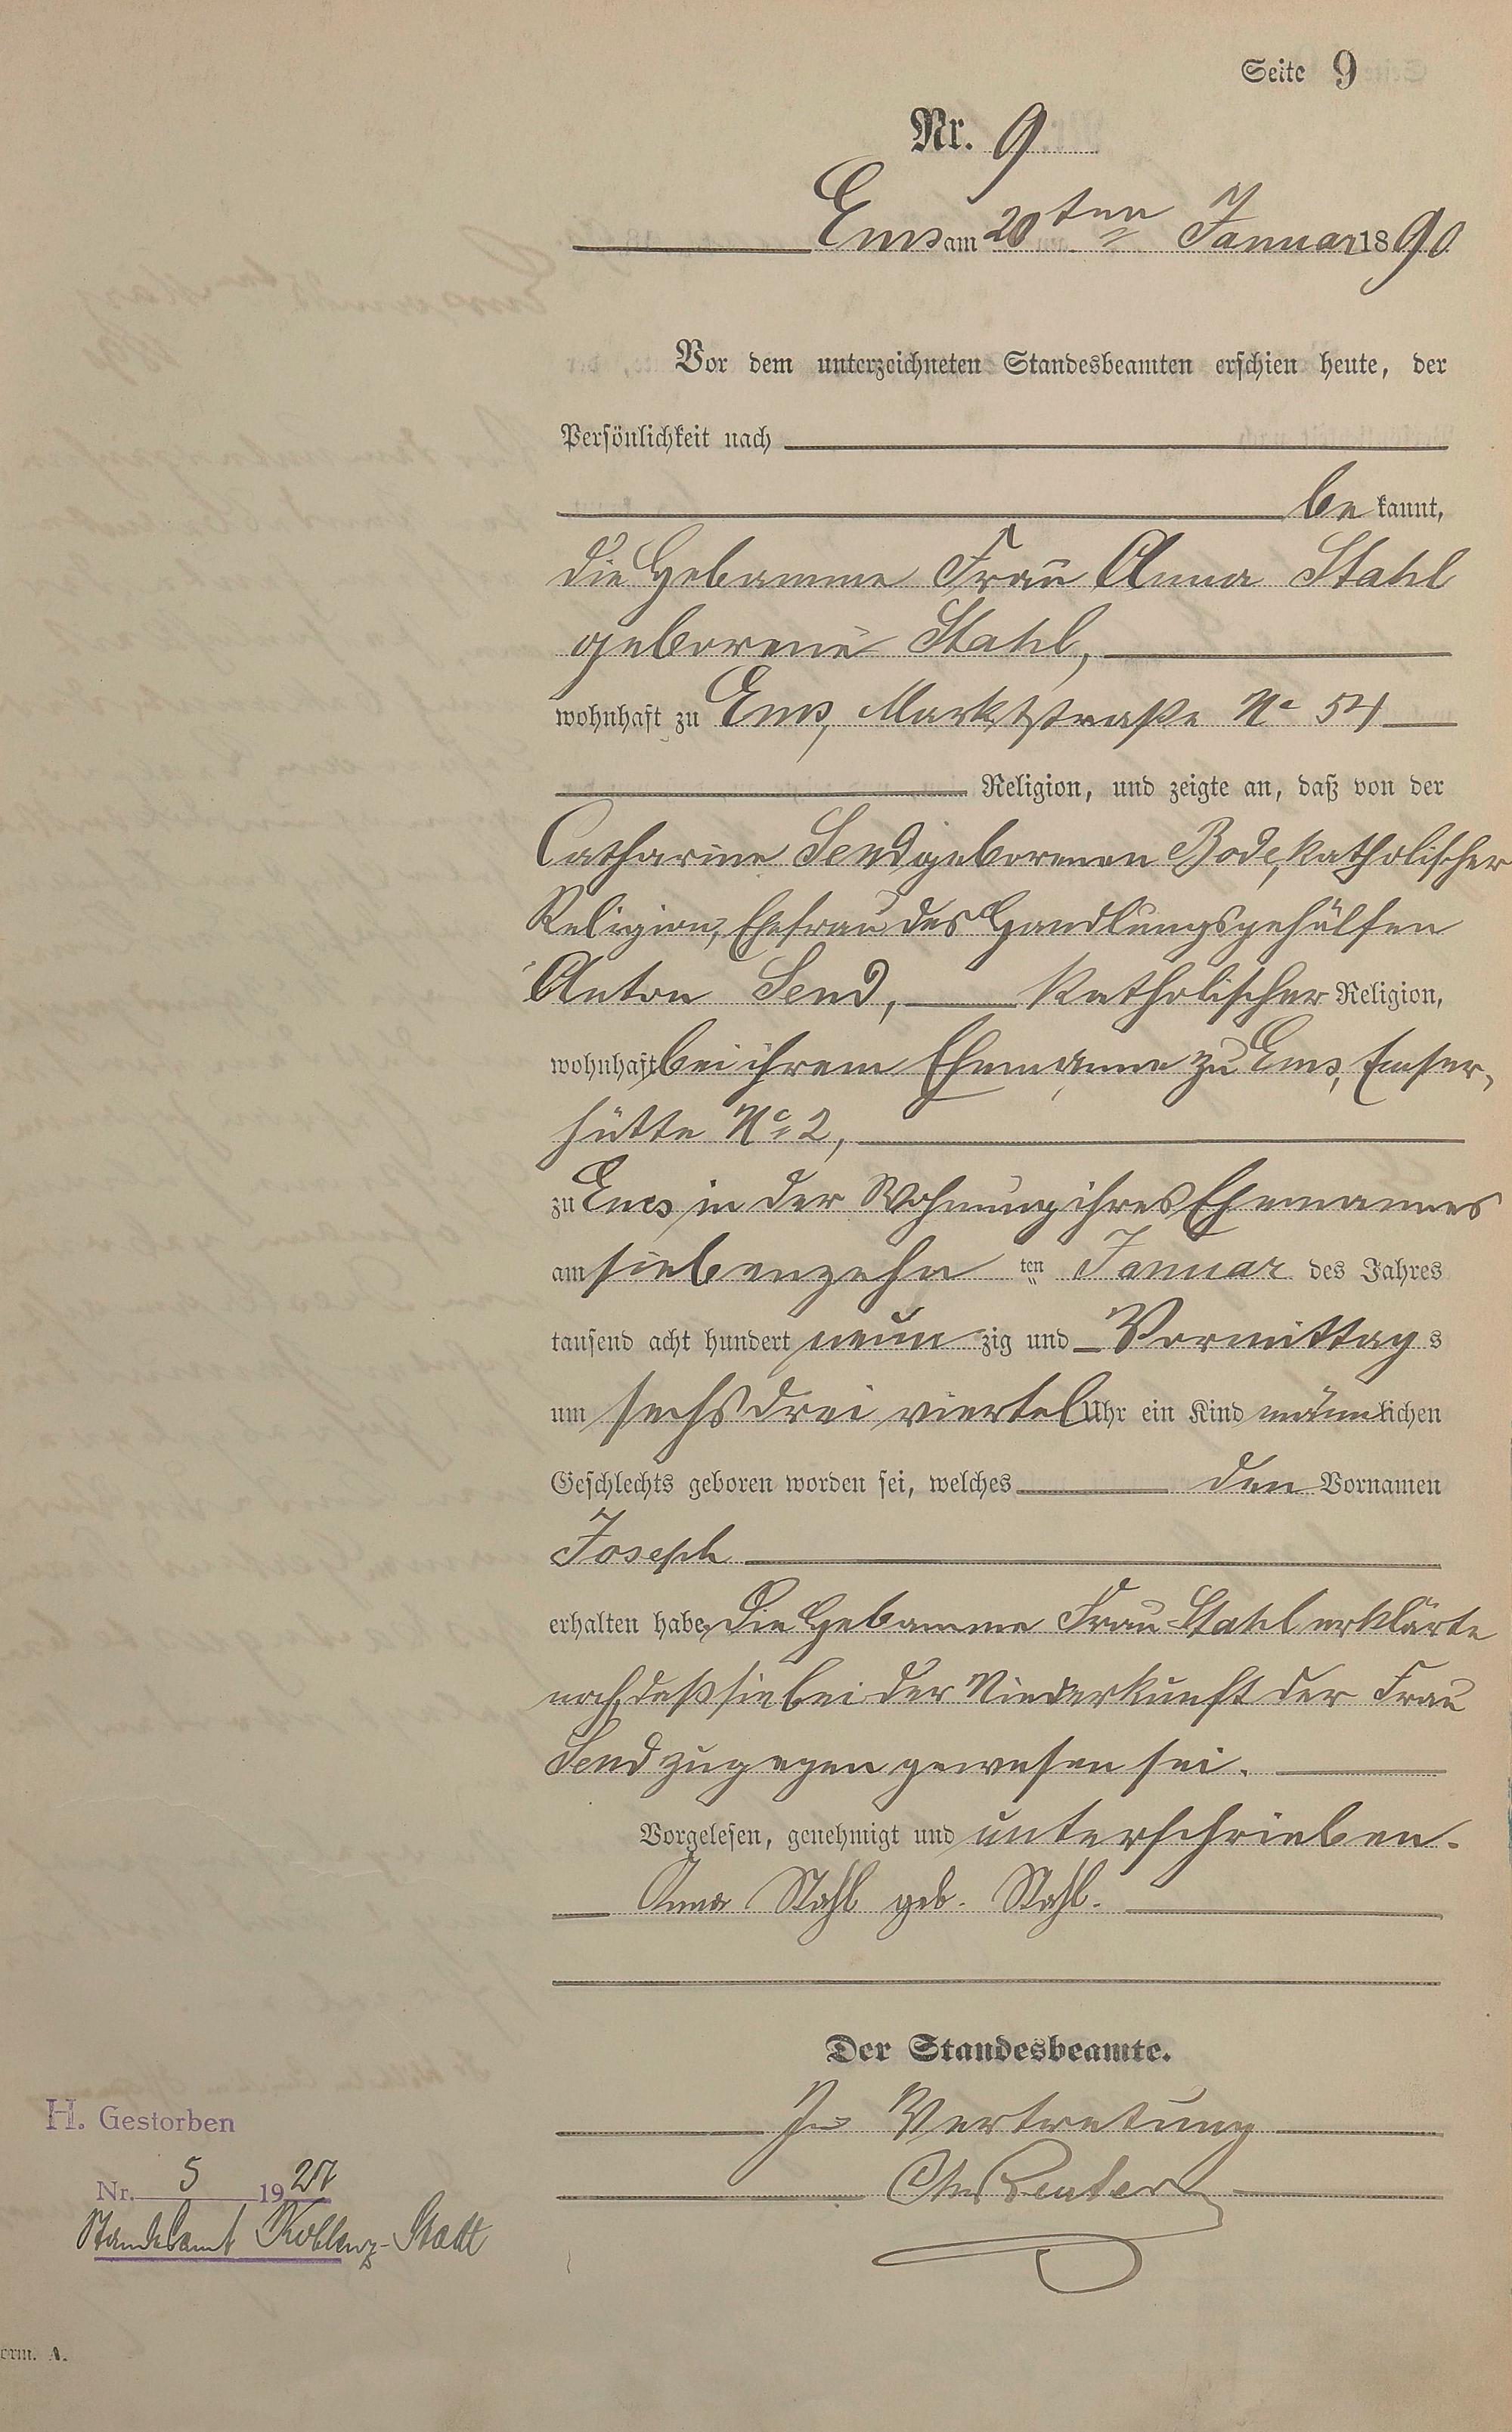 Seite 9
Nr. 9
Ems am 20ten Januar 1890
Vor dem unterzeichneten Standesbeamten erschien heute, der
Persönlichkeit nach
be kannt,
die Hebamme Frau Anna Stahl
geborene Stahl,
wohnhaft zu Ems, Marktstraße No 54
Religion, und zeigte an, daß von der
Catharine Send geborenen Bode, katholischer
Religion, Ehefrau des Handlungsgehülfen
Anton Send, katholischer Religion,
wohnhaft bei ihrem Ehemanne zu Ems, Emser-
hütte No 2,
zu Ems in der Wohnung ihres Ehemannes
am siebenzehn ten Januar des Jahres
tausend acht hundert neun zig und Vormittag s
um sechs drei viertel Uhr ein Kind männlichen
Geschlechts geboren worden sei, welches den Vornamen
Joseph
erhalten habe. Die Hebamme Frau Stahl erklärte
noch, daß sie bei der Niederkunft der Frau
Send zugegen gewesen sei.
Vorgelesen, genehmigt und unterschrieben.
Anna Stahl geb. Stahl.
Der Standesbeamte.
In Vertretung
Reuter
H. Gestorben
Nr. 5 1927
Standesamt Koblenz-Stadt
orm. A.